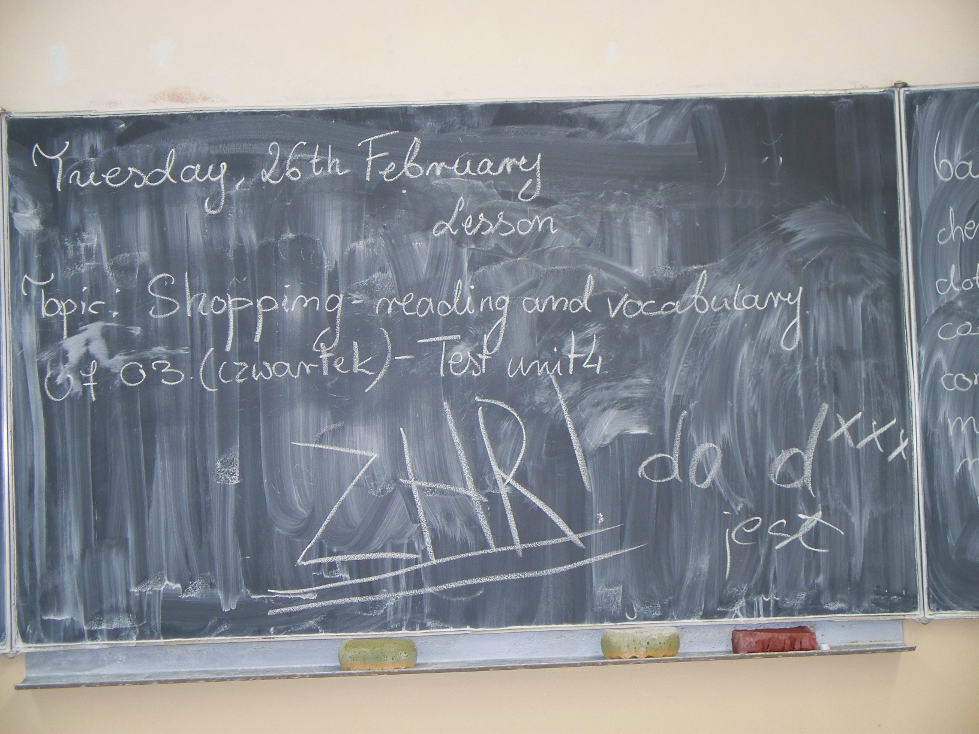 Tuesday, 26th February
Lesson
Topic: Shopping - reading and vocabulary.
06.03. (czwartek) - Test unit 4
ZHR!
da dxxx
jest
ba
che
do
co
con
m